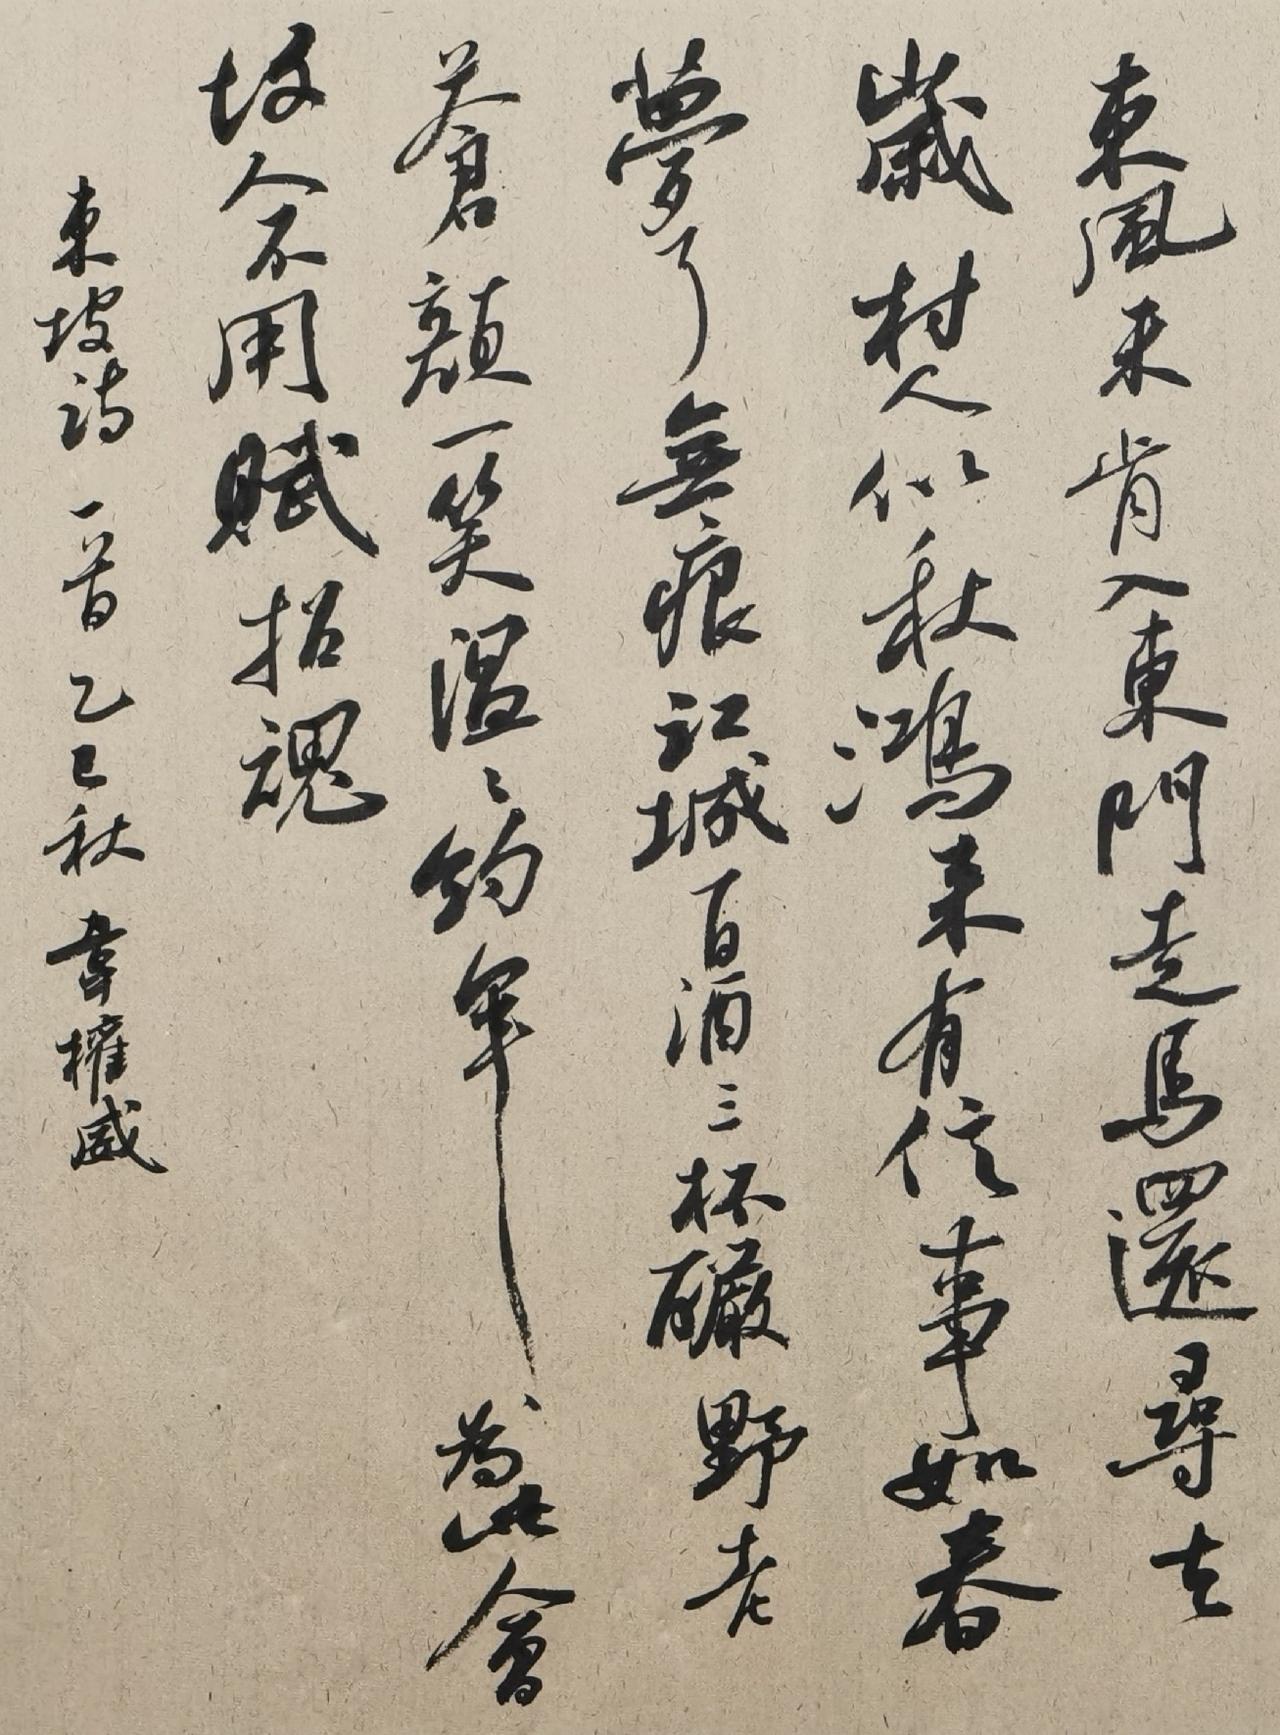 東風未肯入東門走馬還尋去
歲村人似秋鴻來有信事如春
夢了無痕江城白酒三杯釅野老
蒼顏一笑溫已約年為此會
故人不用賦招魂
東坡詩一首乙巳秋韋權威